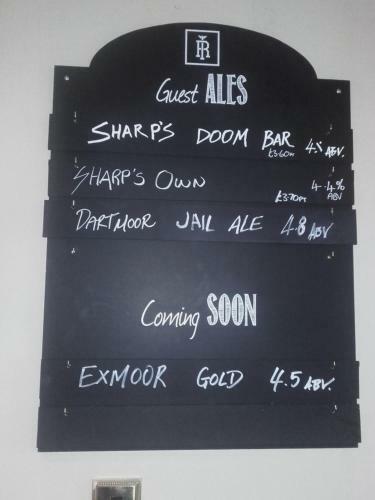 TR
Guest ALES
SHARP'S DOOM BAR
£3.60pt
ABV.
SHARP'S OWN
4.4%
£3.70pt
ABV
DARTMOOR JAIL ALE 4.8 ABV
Coming SOON
EXMOOR GOLD 4.5 ABV.